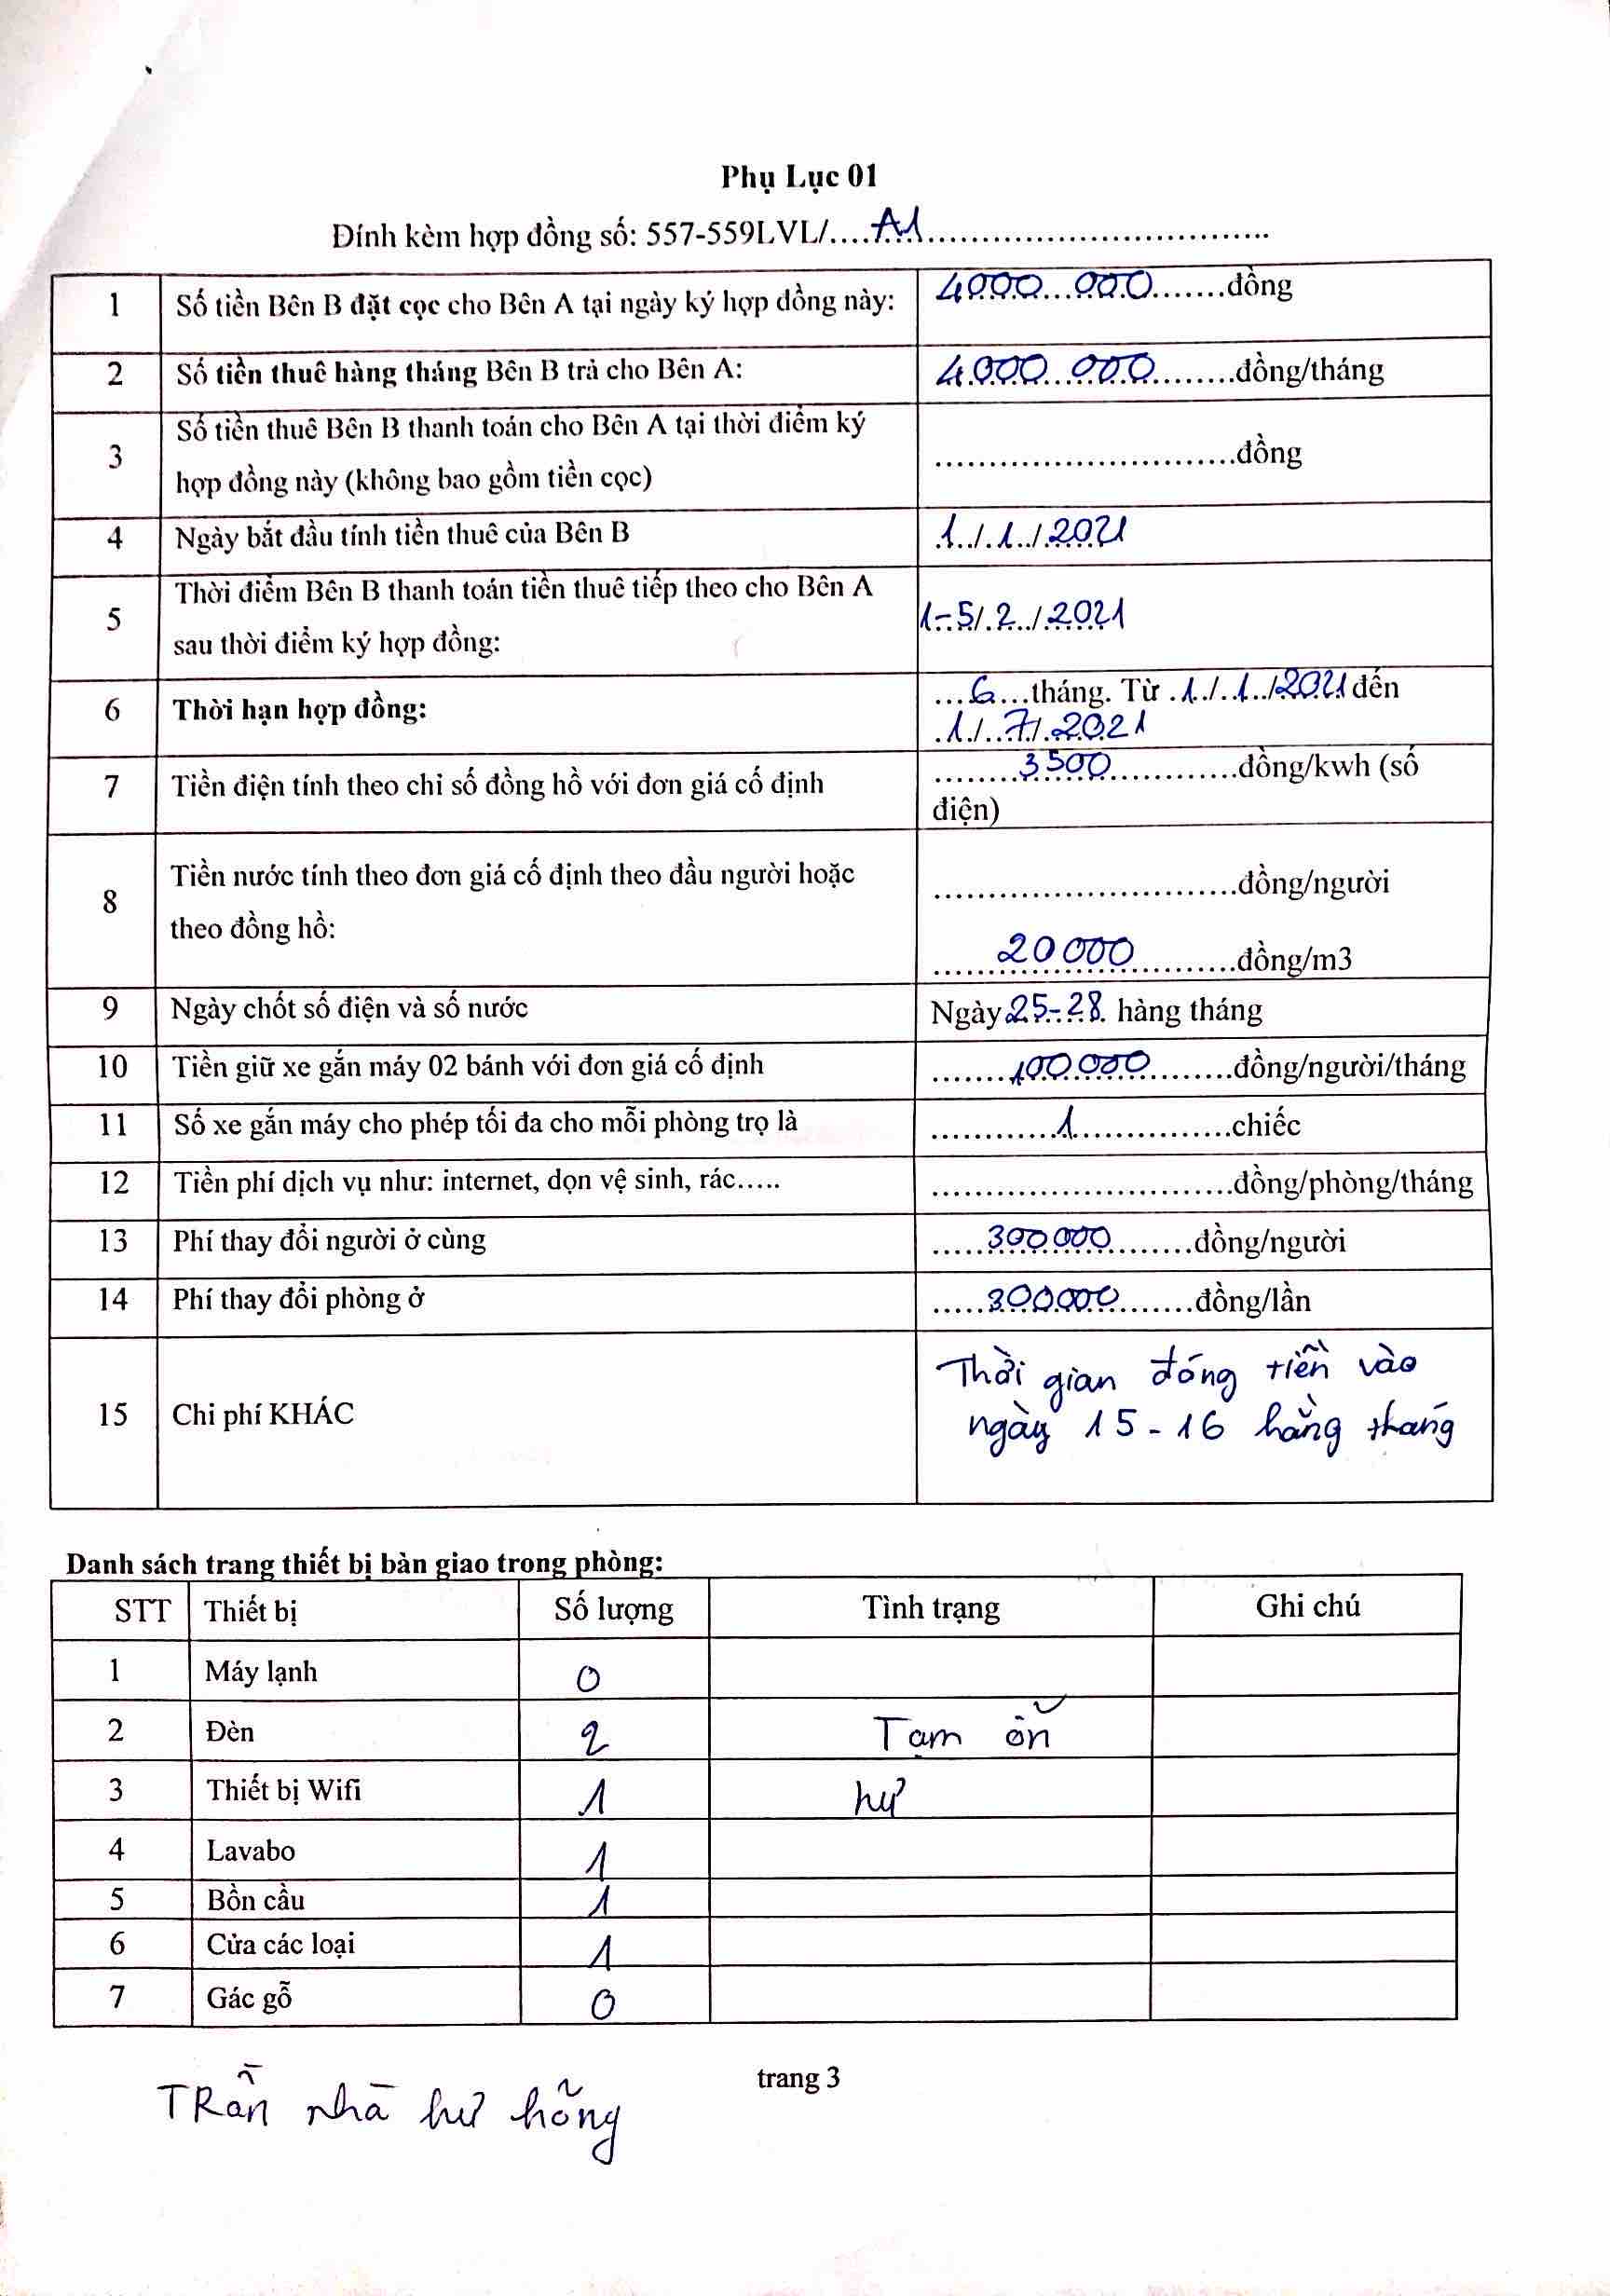 Phụ Lục 01
Đính kèm hợp đồng số: 557-559LVL/....A1....................................
1 Số tiền Bên B đặt cọc cho Bên A tại ngày ký hợp đồng này: 4000 000 đồng
2 Số tiền thuê hàng tháng Bên B trả cho Bên A: 4000 000 đồng/tháng
3 Số tiền thuê Bên B thanh toán cho Bên A tại thời điểm ký
hợp đồng này (không bao gồm tiền cọc) ............................đồng
4 Ngày bắt đầu tính tiền thuê của Bên B 1/1/2021
5 Thời điểm Bên B thanh toán tiền thuê tiếp theo cho Bên A
sau thời điểm ký hợp đồng: 1-5/2/2021
6 Thời hạn hợp đồng: ...6...tháng. Từ 1/1/2021 đến
1/7/2021
7 Tiền điện tính theo chỉ số đồng hồ với đơn giá cố định 3500 đồng/kwh (số
điện)
8 Tiền nước tính theo đơn giá cố định theo đầu người hoặc
theo đồng hồ: ............................đồng/người
20000 đồng/m3
9 Ngày chốt số điện và số nước Ngày 25-28 hàng tháng
10 Tiền giữ xe gắn máy 02 bánh với đơn giá cố định 100000 đồng/người/tháng
11 Số xe gắn máy cho phép tối đa cho mỗi phòng trọ là 1 chiếc
12 Tiền phí dịch vụ như: internet, dọn vệ sinh, rác..... ............................đồng/phòng/tháng
13 Phí thay đổi người ở cùng 300000 đồng/người
14 Phí thay đổi phòng ở 300000 đồng/lần
15 Chi phí KHÁC Thời gian đóng tiền vào
ngày 15-16 hằng tháng
Danh sách trang thiết bị bàn giao trong phòng:
STT Thiết bị Số lượng Tình trạng Ghi chú
1 Máy lạnh 0
2 Đèn 2 Tạm ổn
3 Thiết bị Wifi 1 hư
4 Lavabo 1
5 Bồn cầu 1
6 Cửa các loại 1
7 Gác gỗ 0
trang 3
TRần nhà hư hỏng